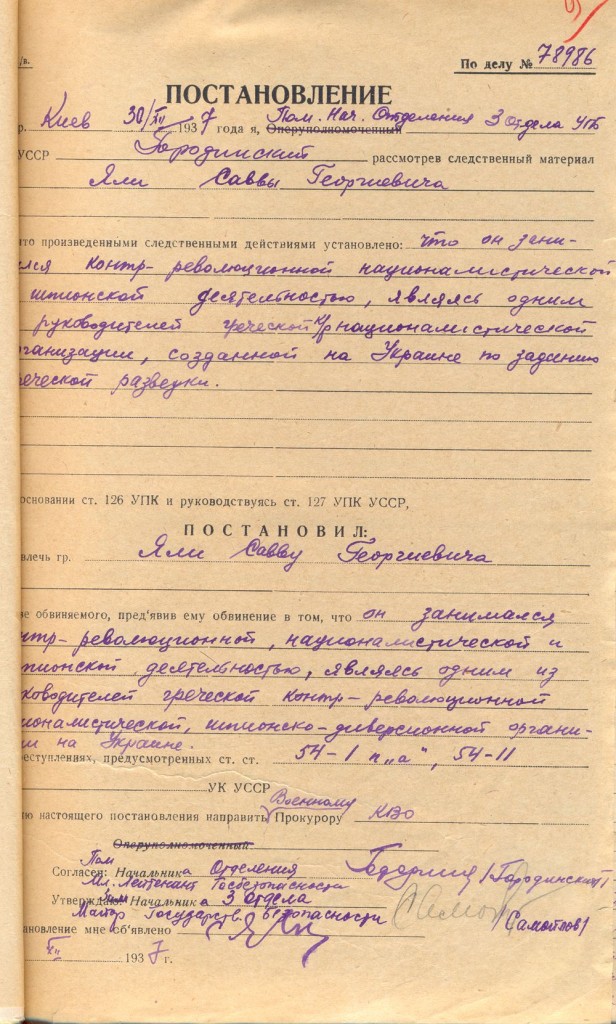 /в.
По делу № 78986
ПОСТАНОВЛЕНИЕ
р. Киев 30/XII 1937 года я, Оперуполномоченный Пом. Нач. Отделения 3 Отдела УГБ
УССР Городинский рассмотрев следственный материал
Яли Саввы Георгиевича
то произведенными следственными действиями установлено: что он зани-
лся контр-революционной националистической
шпионской деятельностью, являясь одним
руководителей греческой к/р националистической
ганизации, созданной на Украине по заданию
реческой разведки.
основании ст. 126 УПК и руководствуясь ст. 127 УПК УССР,
ПОСТАНОВИЛ:
влечь гр. Яли Савву Георгиевича
ве обвиняемого, пред'явив ему обвинение в том, что он занимался
нтр-революционной, националистической и
пионской деятельностью, являясь одним из
ководителей греческой контр-революционной
ионалистической, шпионско-диверсионной органи-
ии на Украине.
реступлениях, предусмотренных ст. ст. 54-1 п „а", 54-11
УК УССР
ию настоящего постановления направить Военному Прокурору КВО
Оперуполномоченный
Согласен: Пом Начальника Отделения /Городинский/
Мл. Лейтенант Госбезопасности
Утверждаю: Зам Начальника 3 отдела
Майор Государств. безопасности /Самойлов/
тановление мне об'явлено
XII 1937 г.